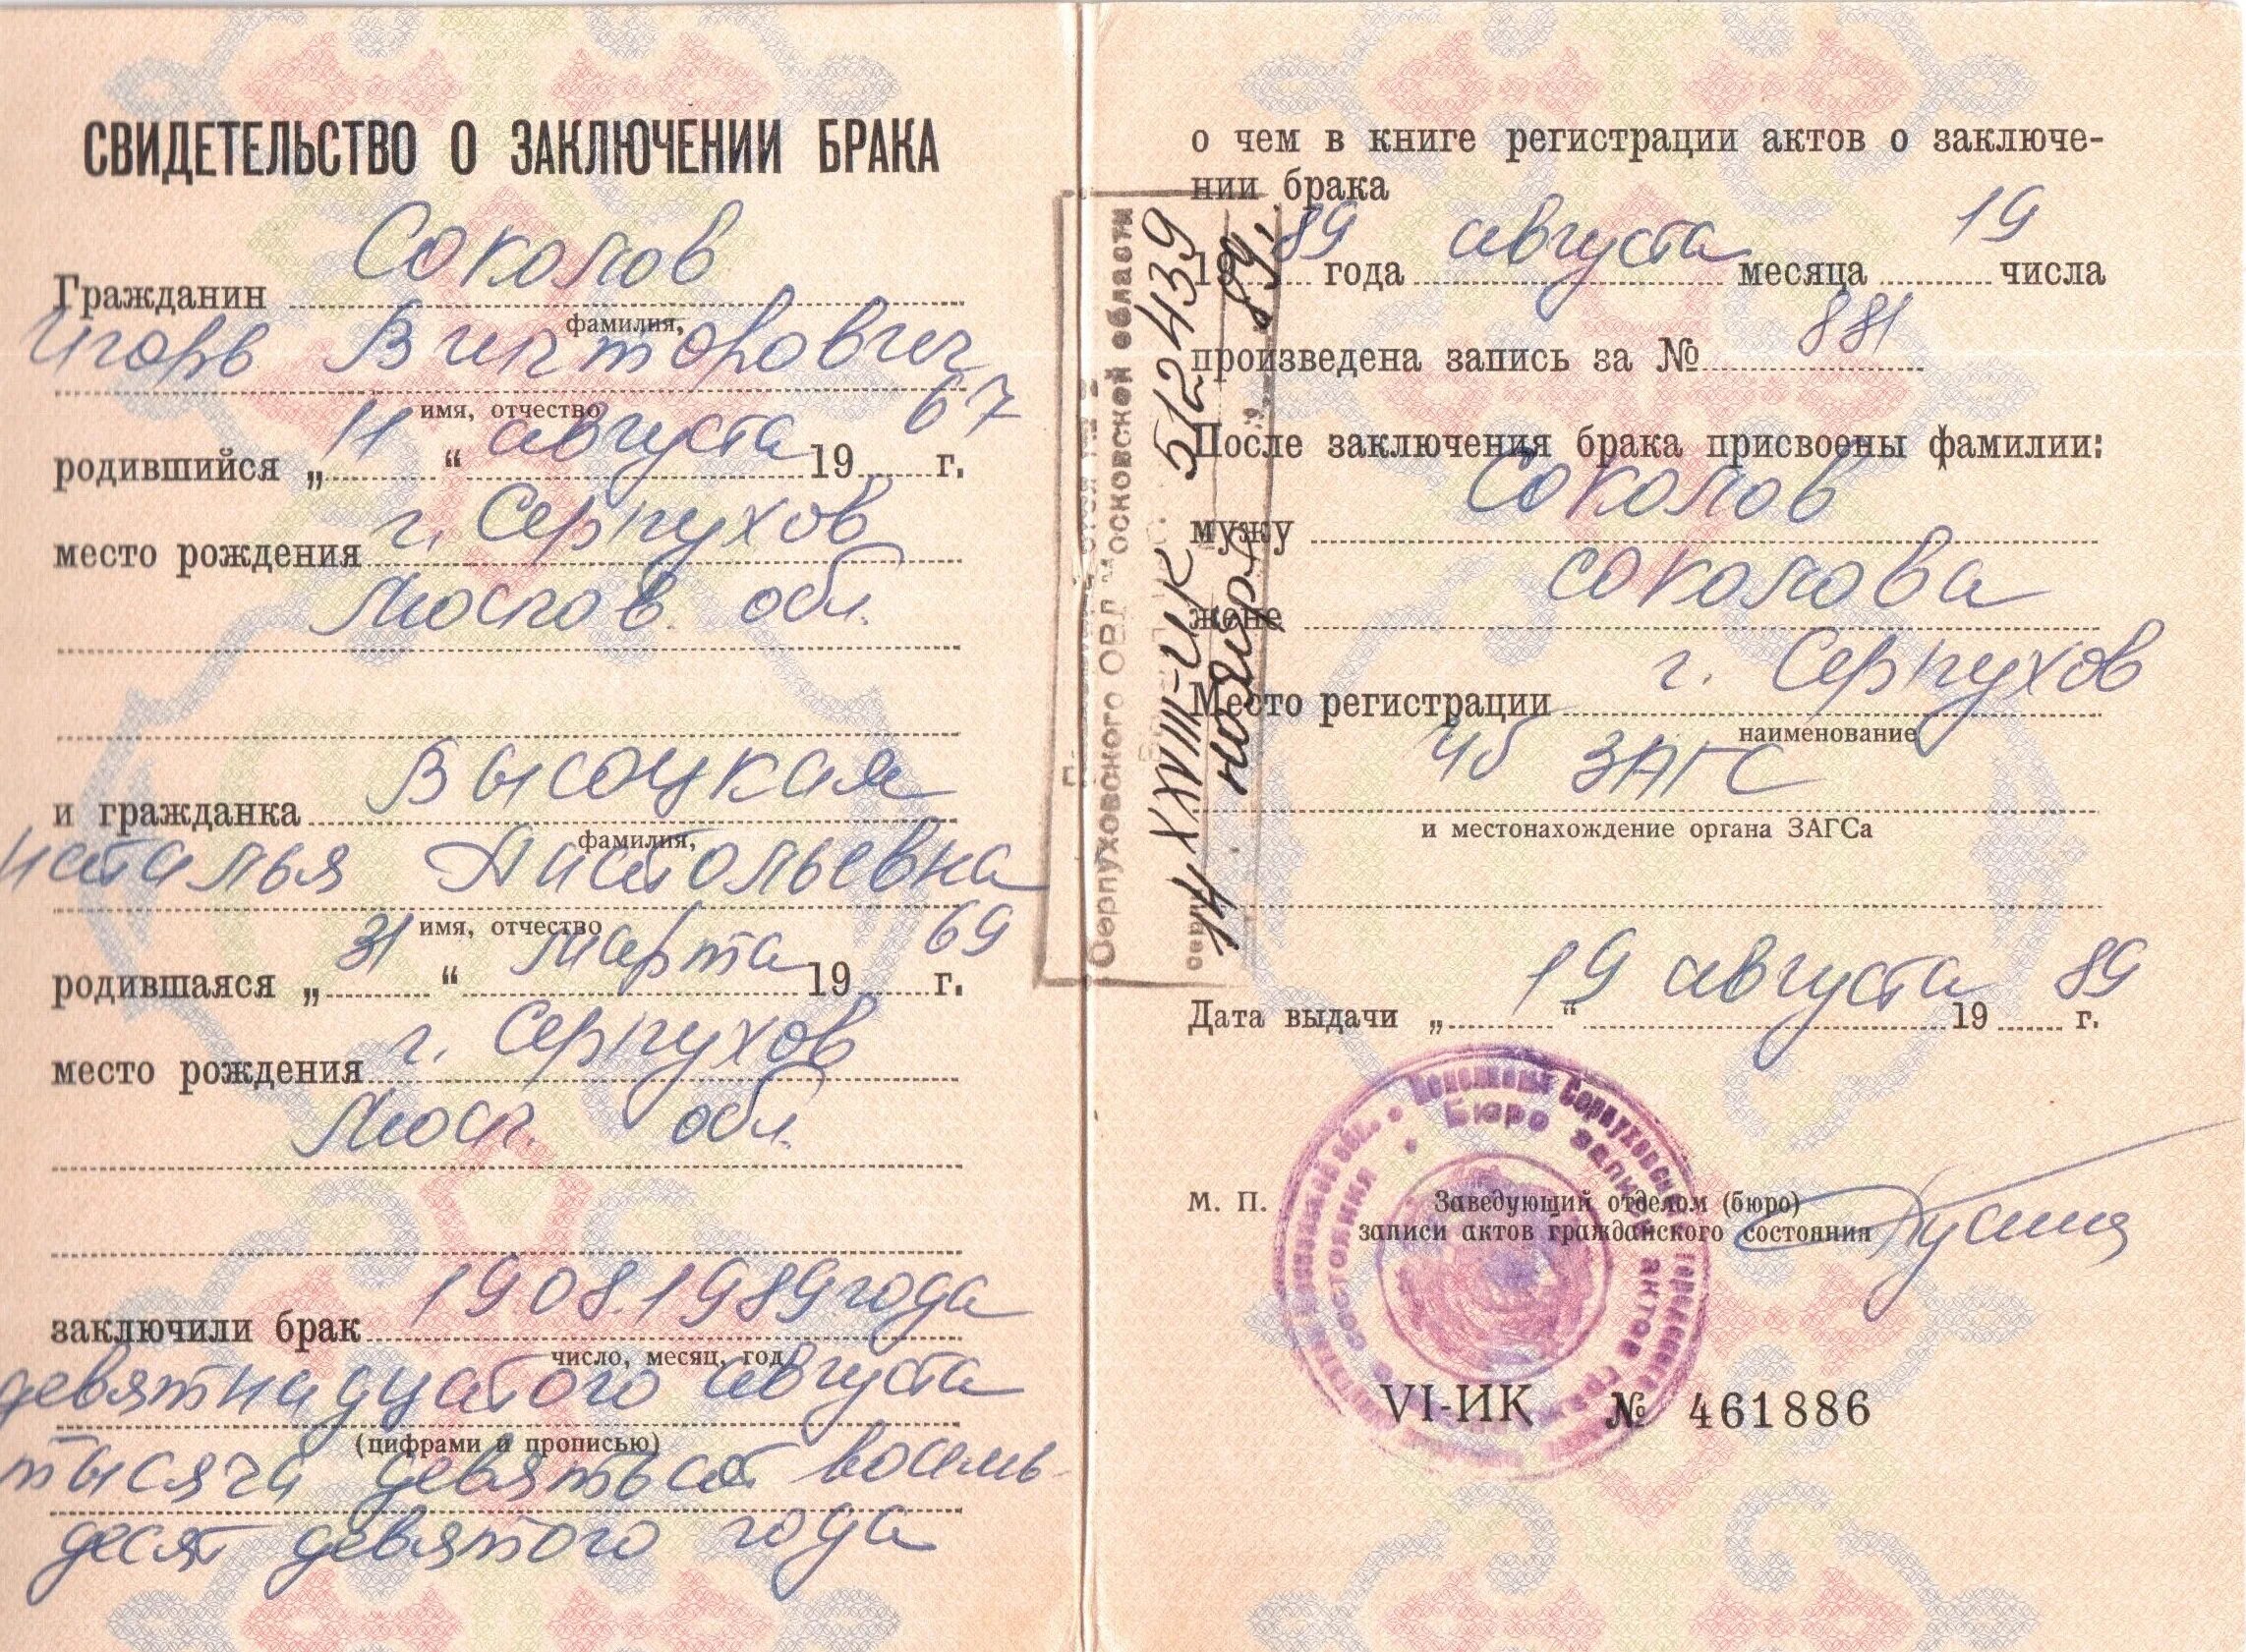 СВИДЕТЕЛЬСТВО О ЗАКЛЮЧЕНИИ БРАКА
Гражданин Соколов
фамилия,
Игорь Викторович
имя, отчество
родившийся „11“ августа 1967 г.
место рождения г. Серпухов
Москов. обл.
и гражданка Высоцкая
фамилия,
Наталья Анатольевна
имя, отчество
родившаяся „31“ марта 1969 г.
место рождения г. Серпухов
Моск. обл.
заключили брак 19.08.1989 года
число, месяц, год
девятнадцатого августа
(цифрами и прописью)
тысяча девятьсот восемь-
десят девятого года
о чем в книге регистрации актов о заключе-
нии брака
1989 года августа месяца 19 числа
произведена запись за № 881
После заключения брака присвоены фамилии:
мужу Соколов
жене Соколова
Место регистрации г. Серпухов
наименование
ЗАГС
и местонахождение органа ЗАГСа
Дата выдачи „19“ августа 1989 г.
М. П.
Заведующий отделом (бюро)
записи актов гражданского состояния
VI-ИК № 461886
Серпуховского ОВД Московской области
XXVIII-ИК 512439
14 ноября 89
Исполкома Серпуховского городского
Бюро записи актов
состояния